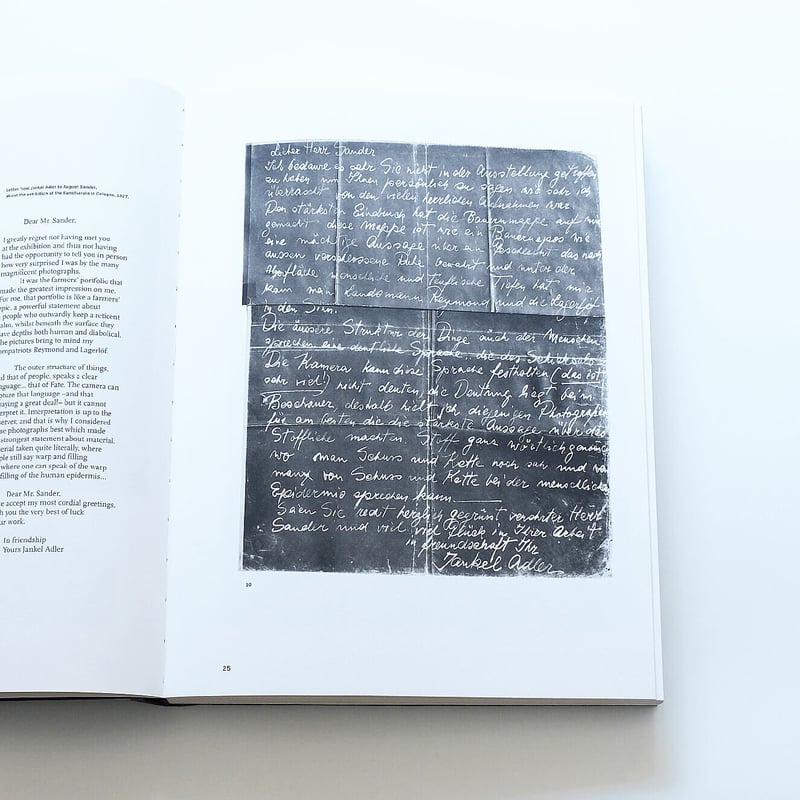 Letter from Jankel Adler to August Sander,
about the exhibition at the Kunstverein in Cologne, 1927.
Dear Mr. Sander,
I greatly regret not having met you
at the exhibition and thus not having
had the opportunity to tell you in person
how very surprised I was by the many
magnificent photographs.
It was the farmers' portfolio that
made the greatest impression on me.
For me, that portfolio is like a farmers'
epic, a powerful statement about
people who outwardly keep a reticent
calm, whilst beneath the surface they
have depths both human and diabolical.
The pictures bring to mind my
compatriots Reymond and Lagerlöf.
The outer structure of things,
and that of people, speaks a clear
language... that of Fate. The camera can
capture that language –and that
saying a great deal!– but it cannot
interpret it. Interpretation is up to the
observer, and that is why I considered
those photographs best which made
strongest statement about material.
material taken quite literally, where
people still say warp and filling
where one can speak of the warp
filling of the human epidermis...
Dear Mr. Sander,
accept my most cordial greetings,
you the very best of luck
your work.
In friendship
Yours Jankel Adler
Lieber Herr Sander
Ich bedaure es sehr Sie nicht in der Ausstellung getroffen
zu haben um Ihnen persönlich zu sagen wie sehr ich
überrascht von den vielen herrlichen Aufnahmen war.
Den stärksten Eindruck hat die Bauernmappe auf mich
gemacht diese Mappe ist wie ein Bauernepos wie
eine mächtige Aussage über ein Geschlecht das nach
aussen verschlossene Ruhe bewahrt und unter der
Oberfläche menschliche und teuflische Tiefen hat mir
kam mein Landsmann Reymond und die Lagerlöf
in den Sinn.
Die äussere Struktur der Dinge auch der Menschen
sprechen eine deutliche Sprache die des Schicksals
Die Kamera kann diese Sprache festhalten (das ist
sehr viel!) nicht deuten, die Deutung liegt beim
Beschauer, deshalb hielt ich diejenigen Photographien
für am besten die die stärkste Aussage über das
Stoffliche machten. Stoff ganz wörtlich genommen
wo man Schuss und Kette noch sah und wo
man von Schuss und Kette bei der menschlichen
Epidermis sprechen kann.
Seien Sie recht herzlich gegrüsst verehrter Herr
Sander und viel viel Glück in Ihrer Arbeit
in freundschaft Ihr
Jankel Adler
10
25